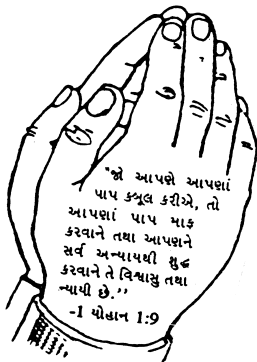 "જો આપણે આપણાં
પાપ કબૂલ કરીએ, તો
આપણાં પાપ માફ
કરવાને તથા આપણને
સર્વ અન્યાયથી શુદ્ધ
કરવાને તે વિશ્વાસુ તથા
ન્યાયી છે.''
-1 યોહાન 1:9